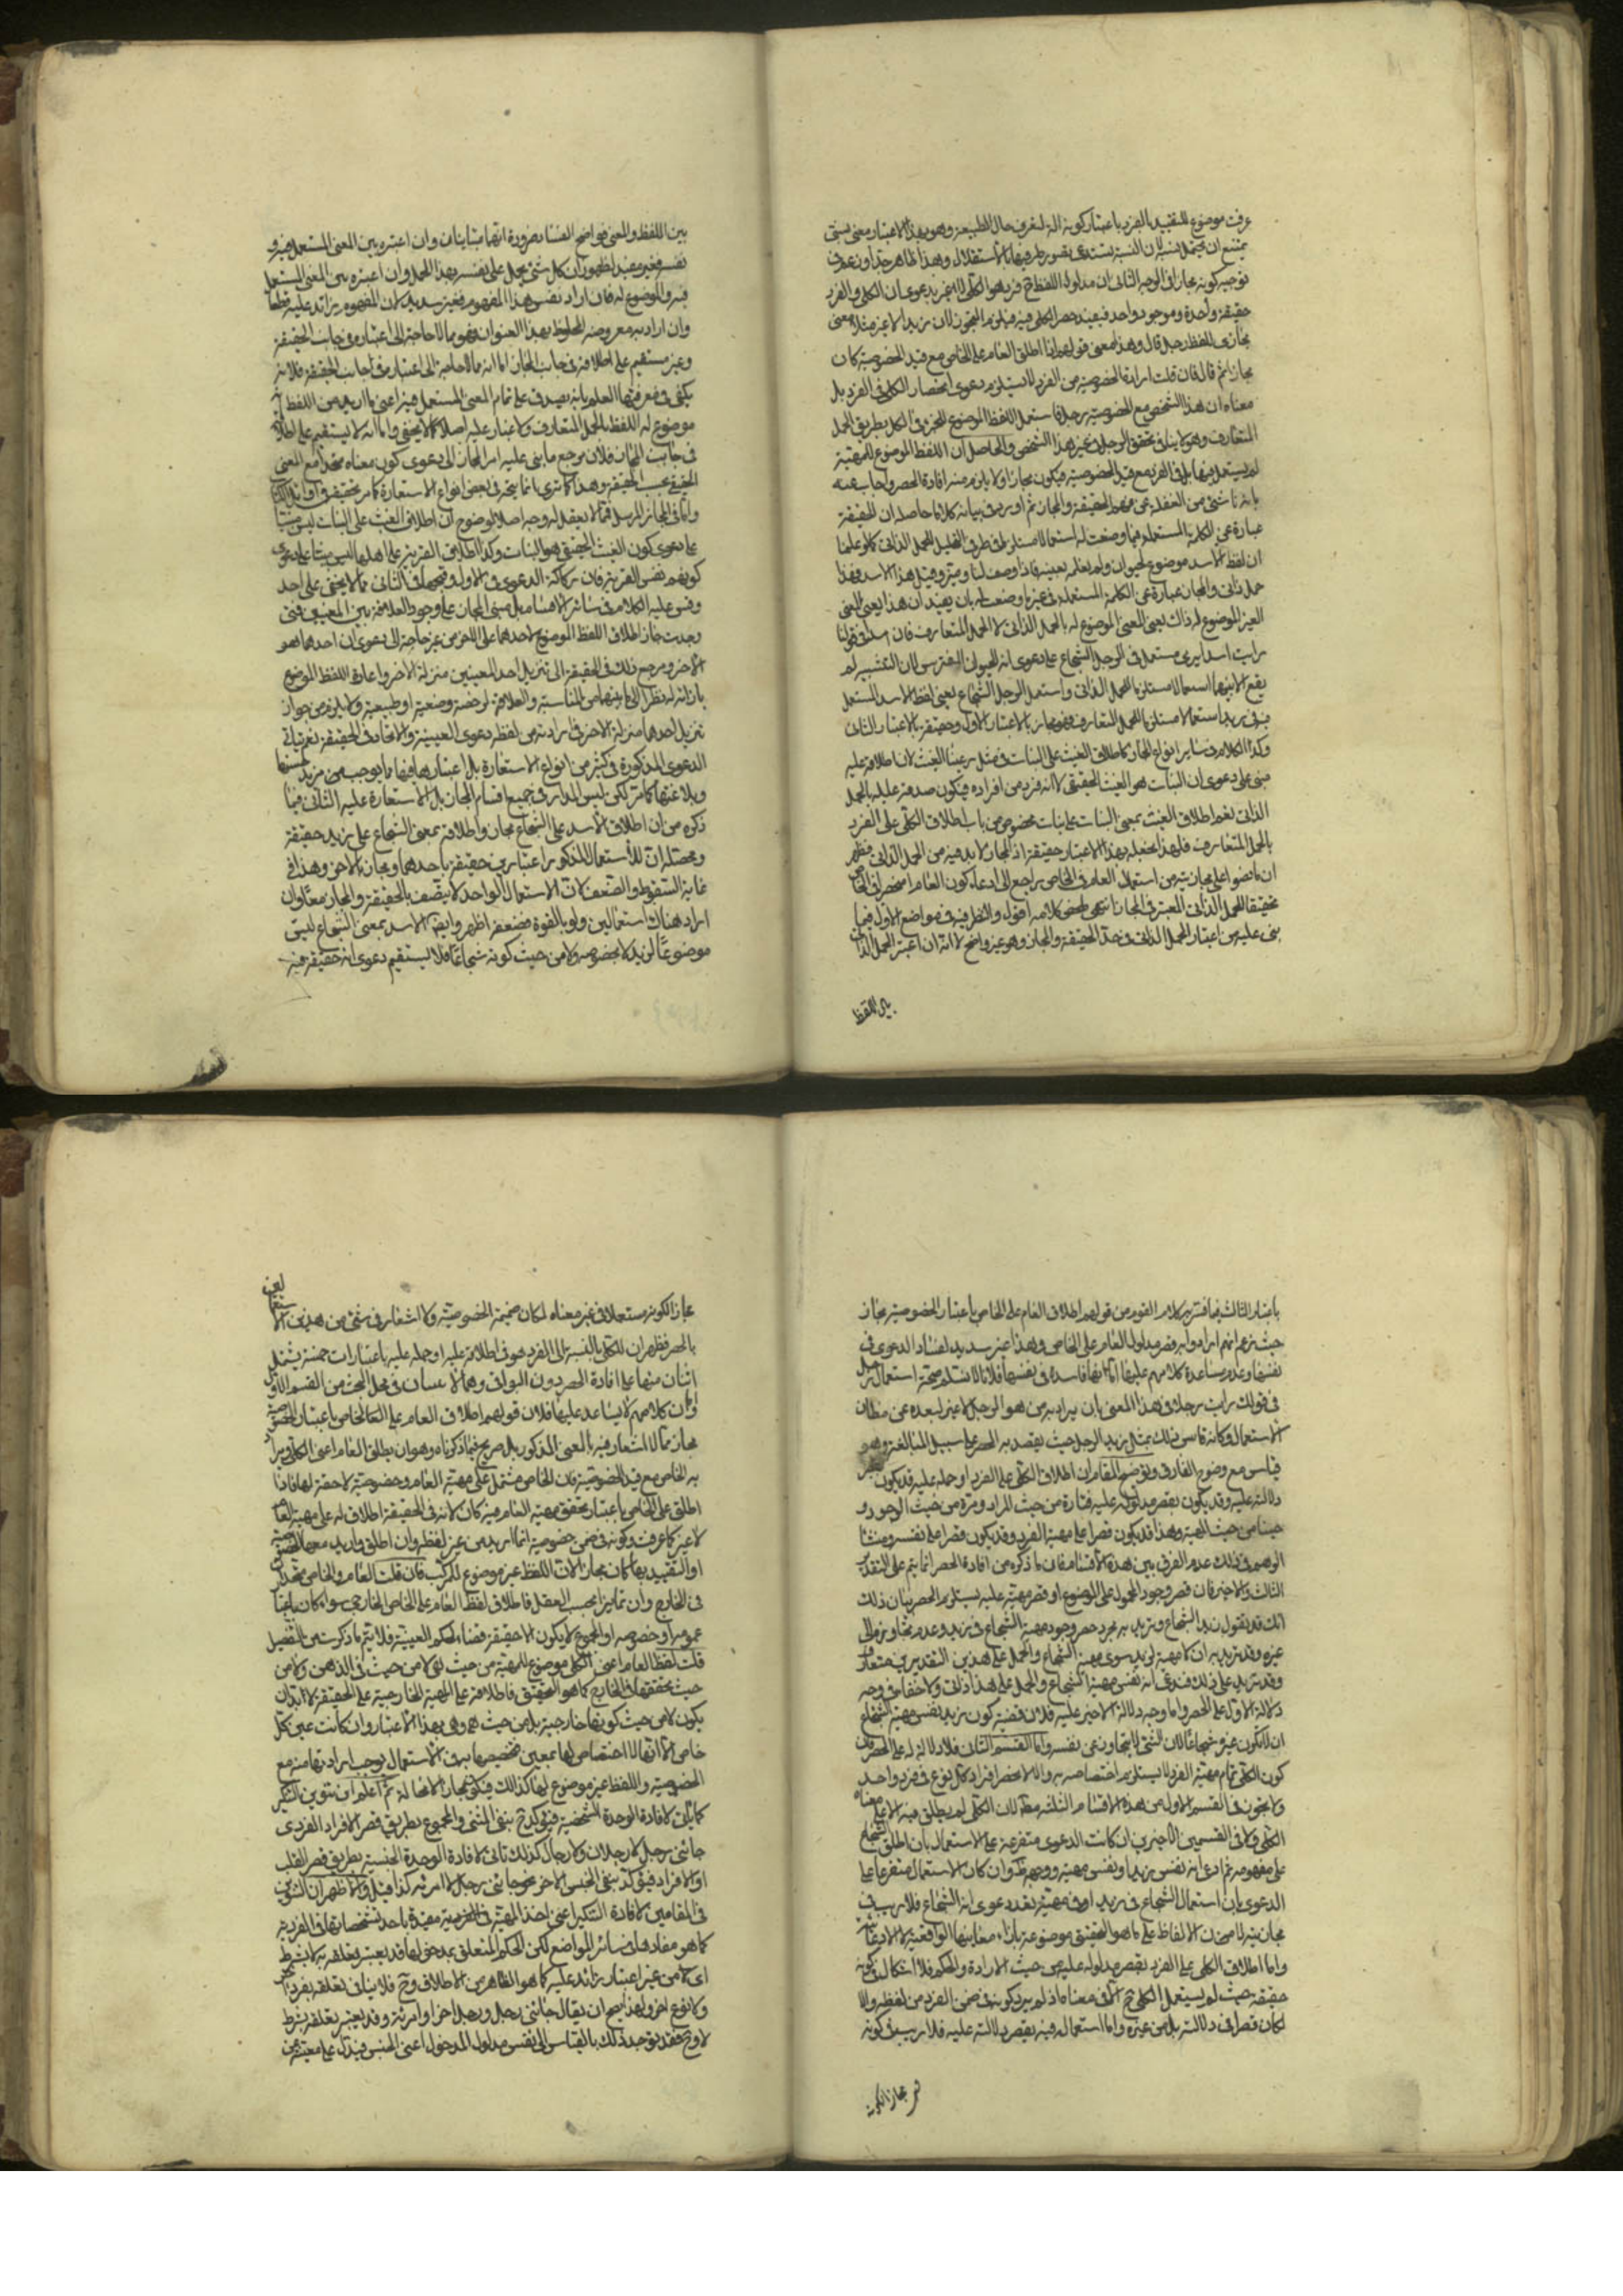 عرفت موضوع للتقييد بالفرد باعتبار كونه الة لتعرف حال الطبيعة وهو بهذا الاعتبار معنى
يمتنع ان يحمل لان النسبة تستدعى تصور طرفيها بالاستقلال وهذا ظاهر جدا
توجيه كونه مجازا فى الوجه الثانى ان مدلول اللفظ ح فرد هو الكلى
حقيقة واحدة وموجود واحد فيفيد حصر الكلى فيه فيلزم التجوز لان زيدا لا غير مثلا معنى
مجازى للفظ رجل قال وهذا معنى قولهم اذا اطلق العام على الخاص مع قيد الخصوصية كان
مجازا ثم قال فان قلت ارادة الخصوصية من الفرد لا يستلزم دعوى انحصار الكلى فى الفرد بل
معناه ان هذا الشخص مع الخصوصية رجل فاستعمل اللفظ الموضوع للجزء فى الكل بطريق الحمل
المتعارف وهو لا ينافى تحقق الرجل فى غير هذا الشخص والحاصل ان اللفظ الموضوع للمهية
لم يستعمل فيها بل فى الفرد مع قيد الخصوصية فيكون مجازا ولا يلزم منه افادة الحصر واجاب عنه
بانه ناش من الغفلة عن مفهوم الحقيقة والمجاز ثم اورد فى بيانه كلاما حاصله ان الحقيقة
عبارة عن الكلمة المستعملة فيما وضعت له استعمالا
ان لفظ الاسد موضوع لحيوان ولم نعلمه بعينه فاذا وصف لنا وميز وقيل هذا الاسد فهذا
حمل ذاتى والمجاز عبارة عن الكلمة المستعملة فى غير ما وضعت له بان يفيد ان هذا يعنى المعنى
الغير الموضوع له ذاك يعنى المعنى الموضوع له بالحمل الذاتى لا الحمل المتعارف فان اسدا فى قولنا
رايت اسدا يرمى مستعمل فى الرجل الشجاع على دعوى انه الحيوان المفترس لان التشبيه لم
يقع الا بينهما
وكذا الكلام فى ساير انواع المجاز كاطلاق الغيث على النبات فى مثل رعينا الغيث لان اطلاقه عليه
مبنى على دعوى ان النبات هو الغيث الحقيقى لا انه فرد من افراده فيكون صدقه عليه بالحمل
الذاتى نعم اطلاق الغيث بمعنى النبات على نبات مخصوص من باب اطلاق الكلى على الفرد
بالحمل المتعارف فلهذا بهذا الاعتبار حقيقة اذ المجاز لا بد فيه من الحمل الذاتى فظهر
ان ما نصوا على مجازيته من استعمال العام فى الخاص راجع الى ادعاء كون العام منحصرا فى الخاص
تحقيقا للحمل الذاتى المعتبر فى المجاز انتهى ملخص كلامه اقول والنظر فيه فى مواضع الاول فيما
بنى عليه من اعتبار الحمل الذاتى فى حد الحقيقة والمجاز وهو غير واضح لانه ان اعتبر الحمل الذاتى
بين اللفظ
بين اللفظ والمعنى فواضح الفساد ضرورة انهما متباينان وان اعتبره بين المعنى المستعمل فيه و
نفسه فغير مفيد لظهور ان كل شئ يحمل على نفسه بهذا الحمل وان اعتبره بين المعنى المستعمل
فيه والموضوع له فان اراد نفس هذا المفهوم فغير سديد لان المفهوم زائد عليه قطعا
وان اراد به معروضه الملحوظ بهذا العنوان فهو مما لا حاجة الى اعتباره فى جانب الحقيقة
وغير مستقيم على اطلاقه فى جانب المجاز اما انه مما لا حاجة الى اعتباره فى جانب الحقيقة فلانه
يكفى فى معرفتها العلم بانه يصدق على تمام المعنى المستعمل فيه اعنى ما اريد من اللفظ انه
موضوع له اللفظ بالحمل المتعارف ولا غبار عليه اصلا كما لا يخفى واما انه لا يستقيم على اطلاقه
فى جانب المجاز فلان مرجع ما بنى عليه امر المجاز الى دعوى كون معناه متحدا مع المعنى
الحقيقى بحسب الحقيقة وهذا كما ترى انما يتجه فى بعض انواع الاستعارة كما مر تحقيقه فى اوائل الكتاب
واما فى المجاز المرسل فمما لا يعقل له وجه اصلا لوضوح ان اطلاق الغيث على النبات ليس مبتنيا
على دعوى كون الغيث الحقيقى هو النبات وكذا اطلاق القرية على اهلها ليس مبنيا على دعوى
كونهم نفس القرية فان ركاكة الدعوى فى الاول وقبحها فى الثانى مما لا يخفى على احد
وقس عليه الكلام فى سائر الاقسام بل مبنى المجاز على وجود العلاقة بين المعنيين فمتى
وجدت جاز اطلاق اللفظ الموضوع لاحدهما على الاخر من غير حاجة الى دعوى ان احدهما هو
الاخر ومرجع ذلك فى الحقيقة الى تنزيل احد المعنيين منزلة الاخر واعارة اللفظ الموضوع
بازائه له نظرا الى ما بينهما من المناسبة والعلاقة لرخصة وضعية او طبيعية ولا يلزم من جواز
تنزيل احدهما منزلة الاخر فى ارادته من لفظه دعوى العينية والاتحاد فى الحقيقة نعم تتاتى
الدعوى المذكورة فى كثير من انواع الاستعارة بل اعتبارها فيها مما يوجب مزيد حسنها
وبلاغتها كما مر لكن ليس المدار فى جميع اقسام المجاز بل الاستعارة عليه الثانى فيما
ذكره من ان اطلاق الاسد على الشجاع مجاز واطلاقه بمعنى الشجاع على زيد حقيقة
ومحصله ان للاستعمال المذكور اعتبارين حقيقة باحدهما ومجاز بالاخر وهذا فى
غاية السقوط والضعف لان الاستعمال الواحد لا يتصف بالحقيقة والمجاز معا وان
اراد هناك استعمالين ولو بالقوة فضعفه اظهر وايضا الاسد بمعنى الشجاع ليس
موضوعا لزيد لا بخصوصه ولا من حيث كونه شجاعا فلا يستقيم دعوى انه حقيقة فيه
باعتبار الثالث فيما فسر به كلام القوم من قولهم اطلاق العام على الخاص باعتبار الخصوصية مجاز
حيث زعم انهم ارادوا به قصر مدلول العام على الخاص وهذا غير سديد لفساد الدعوى فى
نفسها وعدم مساعدة كلامهم عليها اما انها فاسدة فى نفسها فلانا لا نسلم صحة استعمال رجل
فى قولك رايت رجلا فى هذا المعنى بان يراد به من هو الرجل لا غير لبعده عن مظان
الاستعمال وكانه قاس ذلك بمثل زيد الرجل حيث يقصد به الحصر على سبيل المبالغة وهو
قياس مع وضوح الفارق وتوضيح المقام ان اطلاق الكلى على الفرد او حمله عليه قد يكون
دلالته عليه وقد يكون بقصر مدلوله عليه فتارة من حيث المراد ومرة من حيث الوجود و
حينا من حيث المهية وهذا قد يكون قصرا على مهية الفرد وقد يكون قصرا على نفسه ومنشا
الوهم فى ذلك عدم الفرق بين هذه الاقسام فان ما ذكره من افادة الحصر انما يتم على التقدير
الثالث والاخير فان قصر وجود المحمول على الموضوع او قصر مهيته عليه يستلزم الحصر بيان ذلك
انك قد تقول زيد الشجاع وتريد به مجرد حصر وجود مهية الشجاع فى زيد وعدم تجاوزه الى
غيره وقد تريد به ان لا مهية لزيد سوى مهية الشجاع والحمل على هذين التقديرين متعارف
وقد تزيد على ذلك فتدعى انه نفس مهية الشجاع والحمل على هذا ذاتى ولا خفاء فى وجه
دلالة الاول على الحصر واما وجه دلالة الاخير عليه فلان قضية كون زيد نفس مهية الشجاع
ان لا يكون غيره شجاعا لان الشئ لا يتجاوز عن نفسه واما القسم الثانى فلا دلالة له على الحصر فان
كون الكلى تمام مهية الفرد لا يستلزم اختصاصه به والا لانحصر افراد كل نوع فى فرد واحد
ولا تجوز فى القسم الاول من هذه الاقسام الثلثة مطلقا لان الكلى لم يطلق فيه الا على معناه
الكلى ولا فى القسمين الاخيرين ان كانت الدعوى متفرعة على الاستعمال بان اطلق الشجاع
على مفهومه ثم ادعى انه نفس زيد او نفس مهيته ووجهه ظ وان كان الاستعمال متفرعا على
الدعوى بان استعمل الشجاع فى زيد او فى مهيته بعد دعوى انه الشجاع فلا ريب فى
مجازيته لما مر من ان الالفاظ على ما هو التحقيق موضوعة بازاء معانيها الواقعية لا الادعائية
واما اطلاق الكلى على الفرد بقصر مدلوله عليه من حيث الارادة والحكم فلا اشكال فى كونه
حقيقة حيث لم يستعمل الكلى ح الا فى معناه اذ لم يرد كونه فى ضمن الفرد من لفظه والا
لكان قصرا فى دلالته بل من غيره واما استعماله فيه بقصر دلالته عليه فلا ريب فى كونه
مجازا لكونه
مجازا لكونه مستعملا فى غير معناه لمكان ضميمة الخصوصية ولا اشعار فى شئ من هذين الاستعمالين
بالحصر فظهر ان للكلى بالنسبة الى الفرد هو فى اطلاقه عليه او حمله عليه باعتبارات خمسة يشتمل
اثنان منها على افادة الحصر دون البواقى وهما لا يمسان فى محل البحث من القسم الاول
واما ان كلامهم لا يساعد عليها فلان قولهم اطلاق العام على الخاص باعتبار الخصوصية
مجاز مما لا اشعار فيه بالمعنى المذكور بل صريح فيما ذكرناه وهو ان يطلق العام اعنى الكلى ويراد
به الخاص مع قيد الخصوصية فان الخاص مشتمل على مهية العام وخصوصية لاحقة لها فاذا
اطلق على الخاص باعتبار تحقق مهية العام فيه كان كانه فى الحقيقة اطلاق له على مهية العام
لا غير كما عرفت وكونه فى ضمن خصوصية انما اريد من غير لفظه وان اطلق واريد معها الخصوصية
او التقييد بها كان مجازا لان اللفظ غير موضوع للمركب فان قلت العام والخاص متحدان
فى الخارج وان تمايزا بحسب العقل فاطلاق لفظ العام على الخاص الخارجى سواء كان باعتبار
عمومه او خصوصه او المجموع لا يكون الا حقيقة قضاء لحكم العينية فلا يتم ما ذكرت من التفصيل
قلت لفظ العام اعنى الكلى موضوع للمهية من حيث هى لا من حيث فى الذهن ولا من
حيث تحققها فى الخارج كما هو التحقيق فاطلاقه على المهية الخارجية على الحقيقة لا بد ان
يكون لا من حيث كونها خارجية بل من حيث هى وهى بهذا الاعتبار وان كانت عين كل
خاص الا انها لا اختصاص لها بمعين فتخصيصها به فى الاستعمال يوجب ارادتها منه مع
الخصوصية واللفظ غير موضوع لها كذلك فيكون مجازا لا محالة ثم اعلم ان تنوين التنكير
كما ياتى لافادة الوحدة الشخصية فيؤكد ح بنفى المثنى والمجموع بطريق قصر الافراد الفردى
جائنى رجل لا رجلان ولا رجال كذلك تاتى لافادة الوحدة الجنسية بطريق قصر القلب
او الافراد فيؤكد بنفى الجنس الاخر نحو جائنى رجل لا امرئة كذا قيل والاظهر ان التنوين
فى المقامين لافادة التنكير اعنى اخذ المهية فى الفردية مقيدة باحد تشخصاتها الفردية
كما هو مفادها فى سائر المواضع لكن الحكم المتعلق بمدخولها قد يعتبر تعلقه به لا بشرط
اى لا من غير اعتبار زائد عليه كما هو الظاهر من الاطلاق وح فلا ينافى تعلقه بفرد اخر
ولا بنوع اخر ولهذا يصح ان يقال جائنى رجل ورجل اخر او امرئة وقد يعتبر تعلقه بشرط
لا وح فقد يؤخذ ذلك بالقياس الى نفس مدلول المدخول اعنى الجنس فيدل على